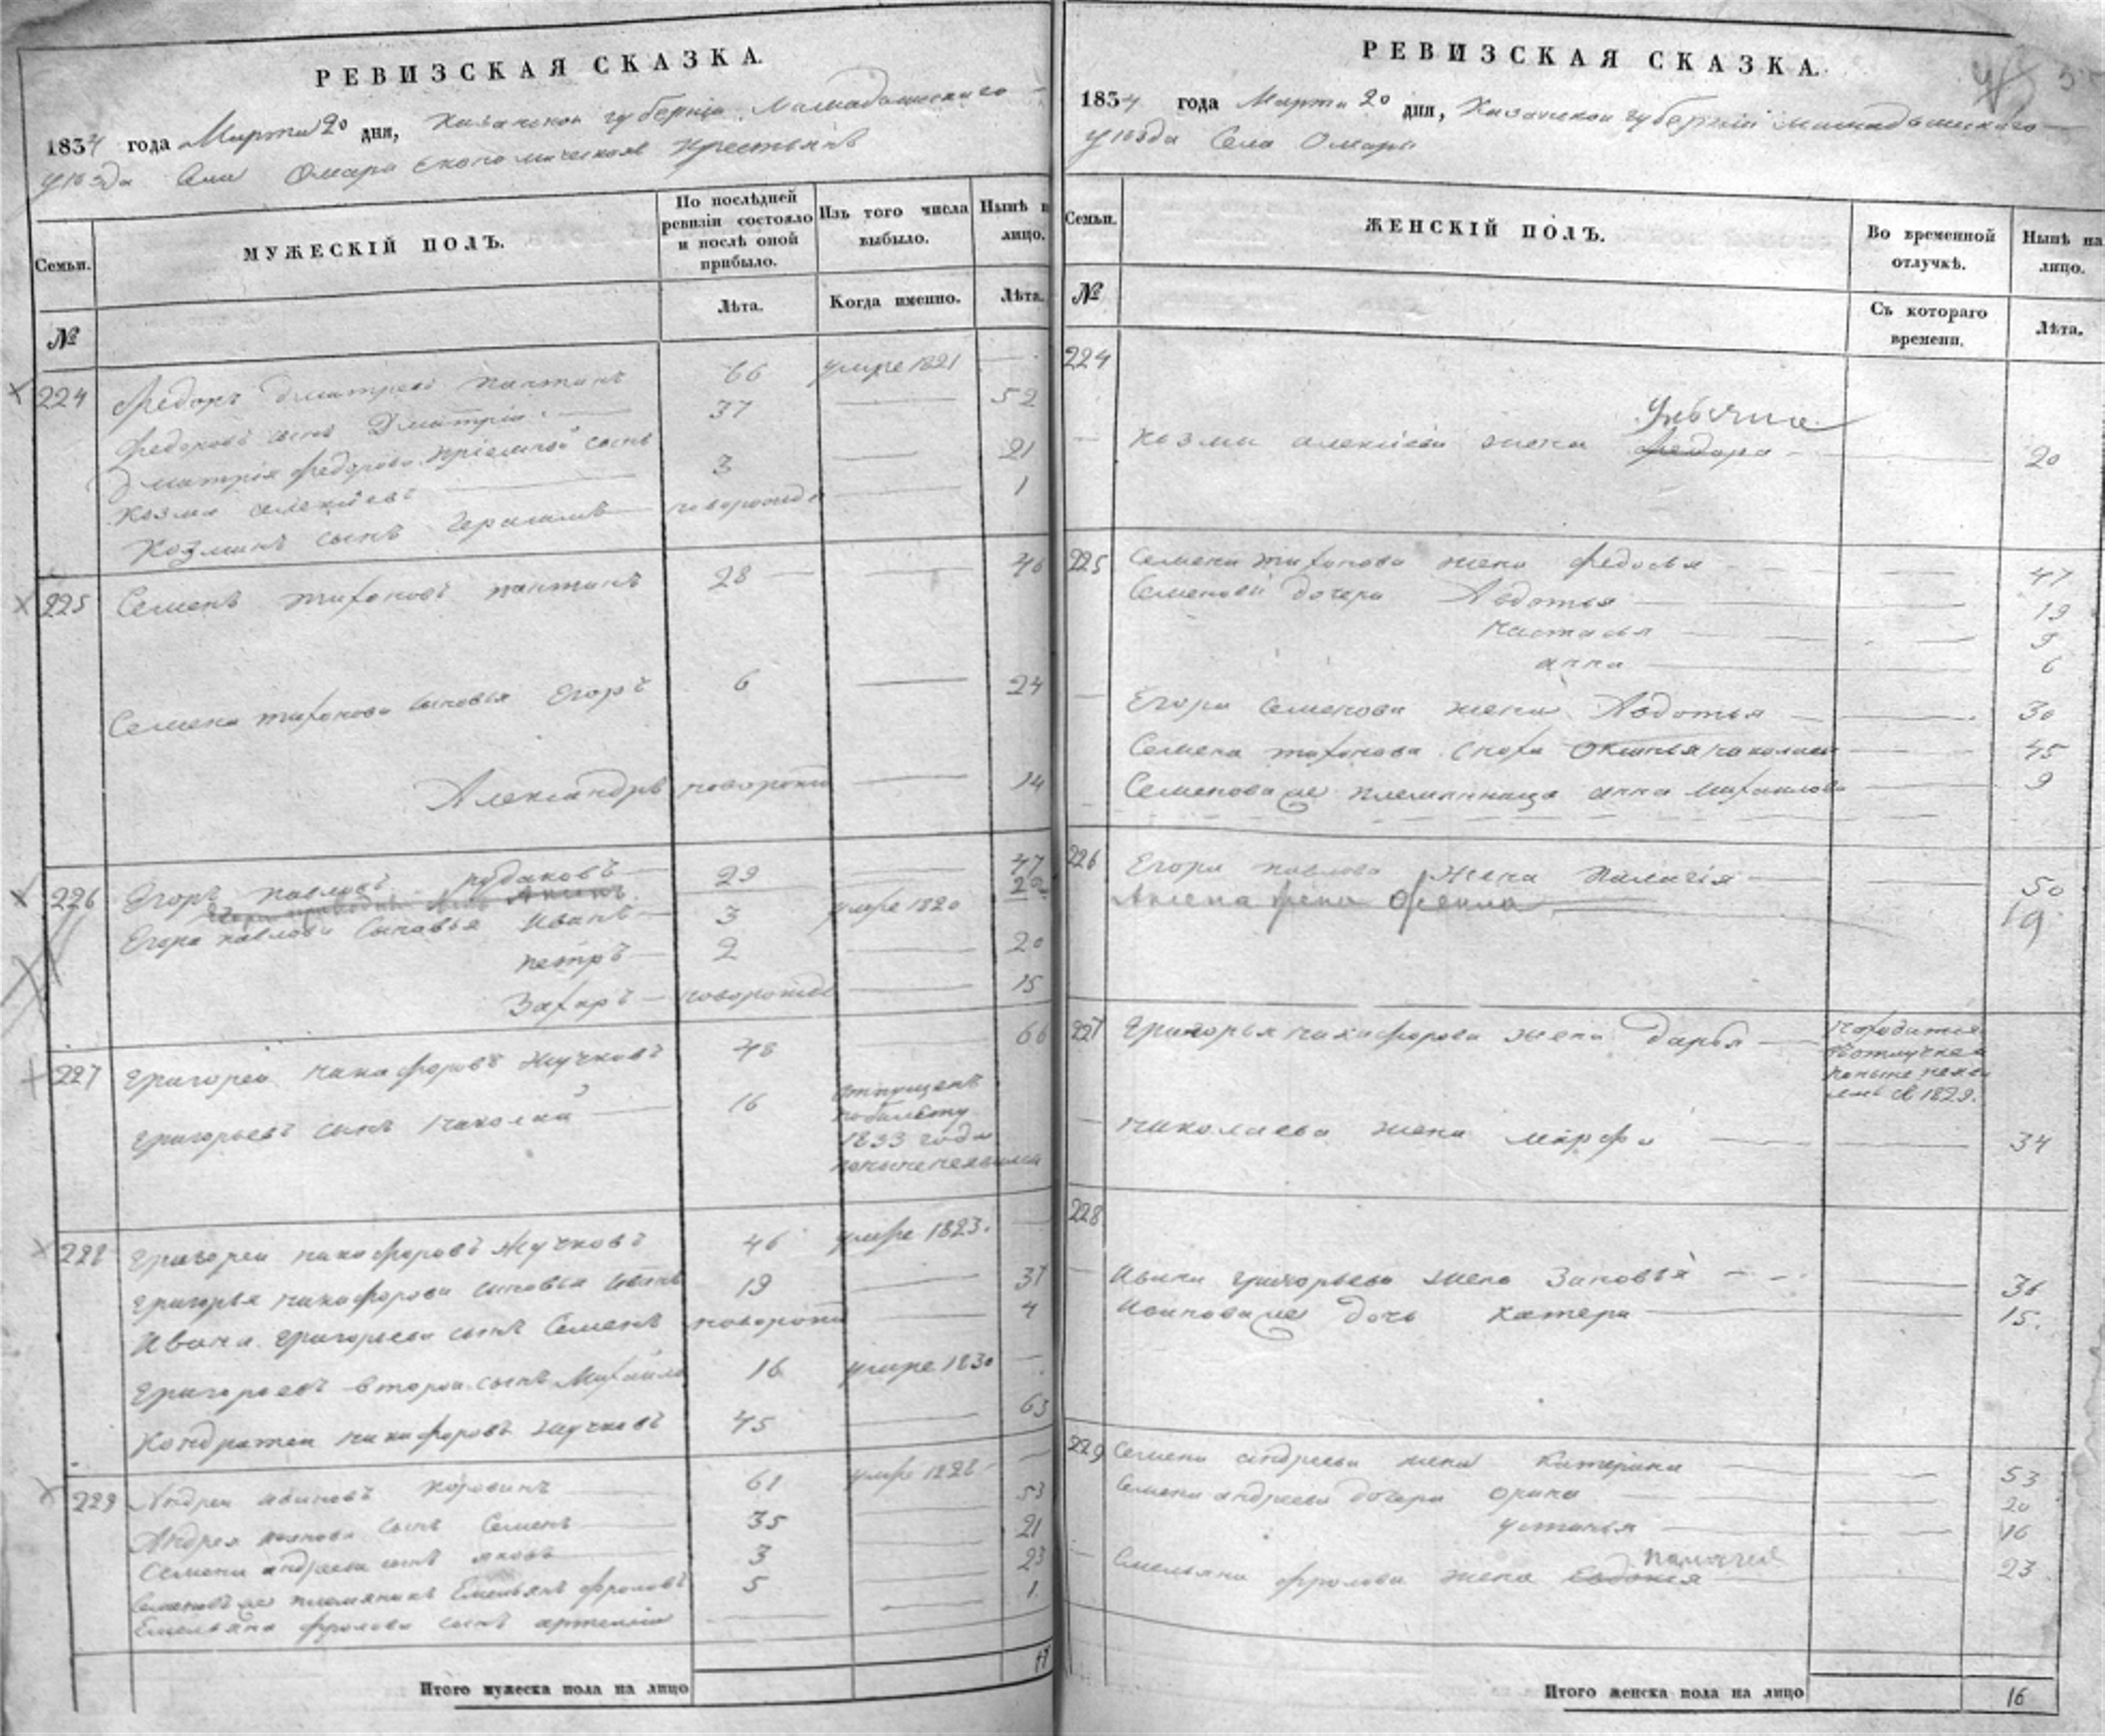 РЕВИЗСКАЯ СКАЗКА.
1834 года Марта 20 дня, Казанской губернiи Мамадышскаго
уѣзда Села Омары Економическихъ крестьянъ
Семьи.
МУЖЕСКІЙ ПОЛЪ.
По послѣдней ревизіи состояло и послѣ оной прибыло.
Изъ того числа выбыло.
Нынѣ н лицо.
№
Лѣта.
Когда именно.
Лѣта.
224 Федоръ Дмитреевъ 66 умре 1821
Федоровъ сынъ Дмитрiй 37 52
Дмитрiя Федорова прiемной сынъ
Козма алексiевъ 3 21
Козминъ сынъ Герасимъ новорожде 1
225 Семенъ тихоновъ 28 46
Семена тихонова сыновья Егоръ 6 24
Александръ новорожд 14
226 Егоръ павловъ рудаковъ 29 47
Аксенъ 20
Егора павлова Сыновья Иванъ 3 умре 1820
петръ 2 20
Захаръ новорожде 15
227 Григореи никифоровъ Жучковъ 48 66
Григорьевъ сынъ николай 16 отпущенъ
побилету
1833 года
понынене явился
228 Григореи никифоровъ Жучковъ 46 умре 1823.
Григорья никифорова сыновья Иванъ 19 37
Ивана Григорьева сынъ Семенъ новорожд 4
Григорьевъ второи сынъ Михаила 16 умре 1830
Кондратеи никифоровъ жучковъ 45 63
229 Андреи ивановъ Коровинъ 61 умре 1828
Андрея иванова сынъ Семенъ 35 53
Семена андреева сынъ яковъ 3 21
Семеновъ же племянникъ Емельянъ фроловъ 5 23
Емельяна фролова сынъ артемiй 1
Итого мужеска пола на лицо 17
РЕВИЗСКАЯ СКАЗКА.
1834 года Марта 20 дня, Казанской губернiи мамадышскаго
уѣзда Села Омары
Семьи.
ЖЕНСКІЙ ПОЛЪ.
Во временной отлучкѣ.
Нынѣ на лицо.
№
Съ котораго времени.
Лѣта.
224
Козмы алексiева жена Федора 20
225 Семена тихонова жена Федосья 47
Семеновы дочери Авдотья 19
настасья 9
анна 6
Егора Семенова жена Авдотья 30
Семена тихонова сноха Оксинья николаев 45
Семенова же племянница анна михаилова 9
226 Егора павлова жена палагiя 50
Аксена жена 19
227 Григорья никифорова жена дарья находится
вотлучкѣ
понынѣ неяв
1829.
николаева жена марфа 34
228
Ивана григорьева жена Зиновья 36
Иванова же дочь катери 15.
229 Семена андреева жена Катерина 53
Семена андреева дочери орина 20
устинья 16
палагея
Емельяна фролова жена Евдокия 23
Итого женска пола на лицо 16